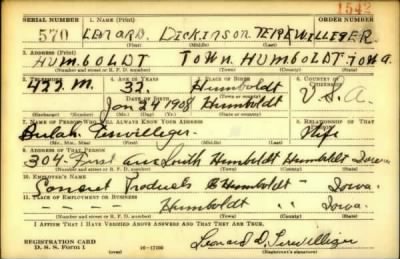 1542
SERIAL NUMBER 1. NAME (Print) ORDER NUMBER
570 LENARD. DICKINSON TERRWILLEGER
(First) (Middle) (Last)
3. ADDRESS (Print)
HUMBOLDT TOWN. HUMBOLDT. IOWA.
(Number and street or R. F. D. number) (Town) (County) (State)
3. TELEPHONE 4. AGE IN YEARS 5. PLACE OF BIRTH 6. COUNTRY OF CITIZENSHIP
477 M. 32. Humboldt
DATE OF BIRTH (Town or county)
Jan 24 1908 Humboldt U.S.A.
(Exchange) (Number) (Mo.) (Day) (Yr.) (State or country)
7. NAME OF PERSON WHO WILL ALWAYS KNOW YOUR ADDRESS 8. RELATIONSHIP OF THAT PERSON
Bulah Terwilleger Wife
(Mr., Mrs., Miss) (First) (Middle) (Last)
9. ADDRESS OF THAT PERSON
304 First Ave South Humboldt Humboldt Iowa
(Number and street or R. F. D. number) (Town) (County) (State)
10. EMPLOYER'S NAME
Products Humboldt " Iowa.
11. PLACE OF EMPLOYMENT OR BUSINESS
Humboldt " Iowa.
(Number and street or R. F. D. number) (Town) (County) (State)
I AFFIRM THAT I HAVE VERIFIED ABOVE ANSWERS AND THAT THEY ARE TRUE.
REGISTRATION CARD
D. S. S. Form 1 16-17105 Leonard D. Terwilliger
(Registrant's signature)